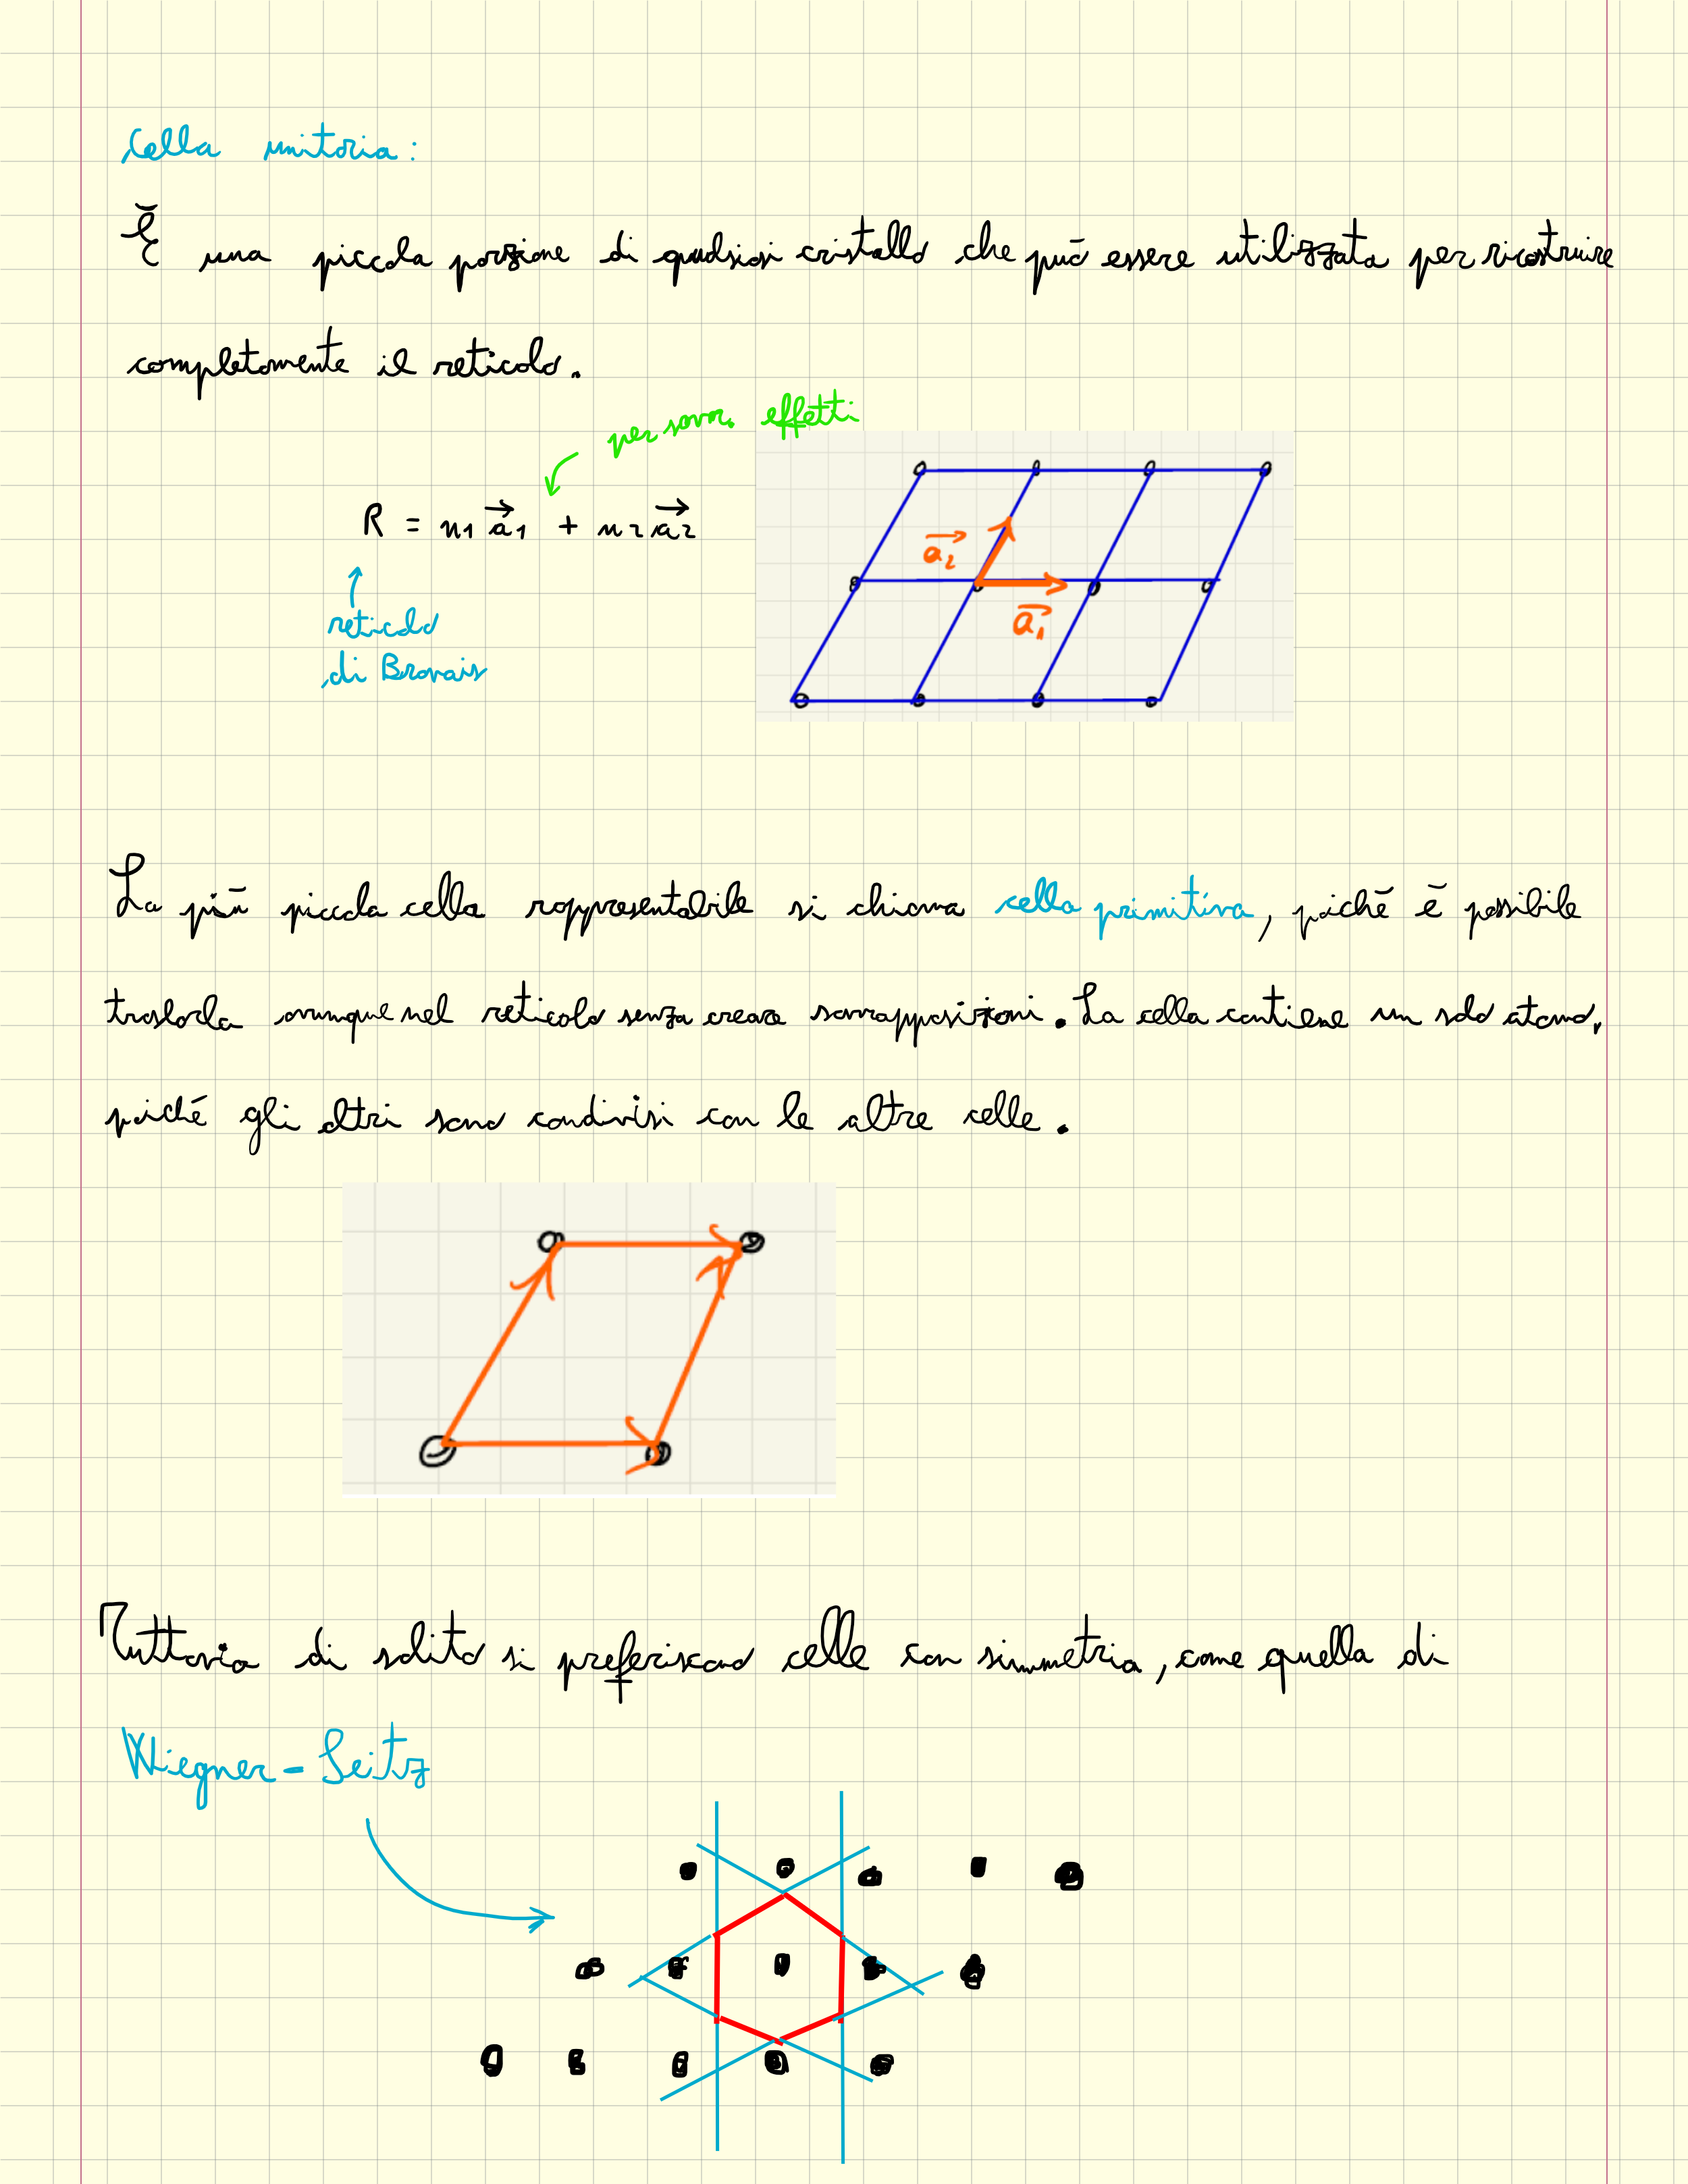 Cella unitaria:
È una piccola porzione di qualsiasi cristallo che può essere utilizzata per ricostruire
completamente il reticolo.
per sovr. effetti
R = n1 a1 + n2 a2
a2
a1
reticolo
di Bravais
La più piccola cella rappresentabile si chiama cella primitiva, poiché è possibile
traslarla ovunque nel reticolo senza creare sovrapposizioni. La cella contiene un solo atomo,
poiché gli altri sono condivisi con le altre celle.
Tuttavia di solito si preferiscono celle con simmetria, come quella di
Wiegner-Seitz